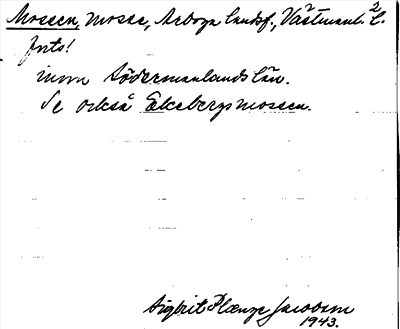 Mossen, mosse, Arboga landsf., Västmanl. L.
Forts!
inom Södermanlands län.
Se också Ekebergsmossen.
Sigbrit Plænge Jacobson
1943.